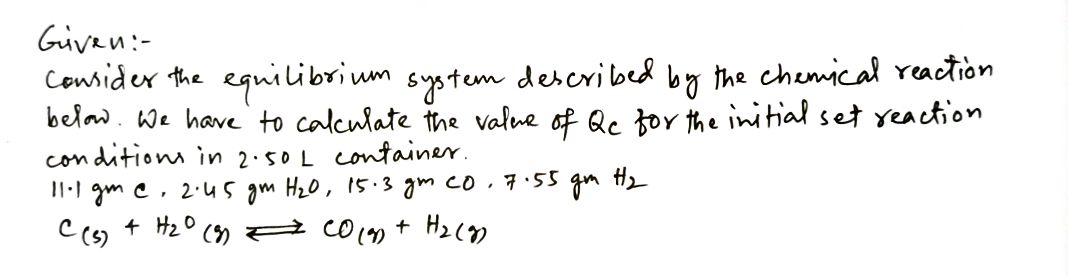 Given:-
Consider the equilibrium system described by the chemical reaction
below. We have to calculate the value of Qc for the initial set reaction
conditions in 2.50 L container.
11.1 gm C, 2.45 gm H₂O, 15.3 gm CO, 7.55 gm H₂
C(s) + H₂O(g) ⇌ CO(g) + H₂(g)